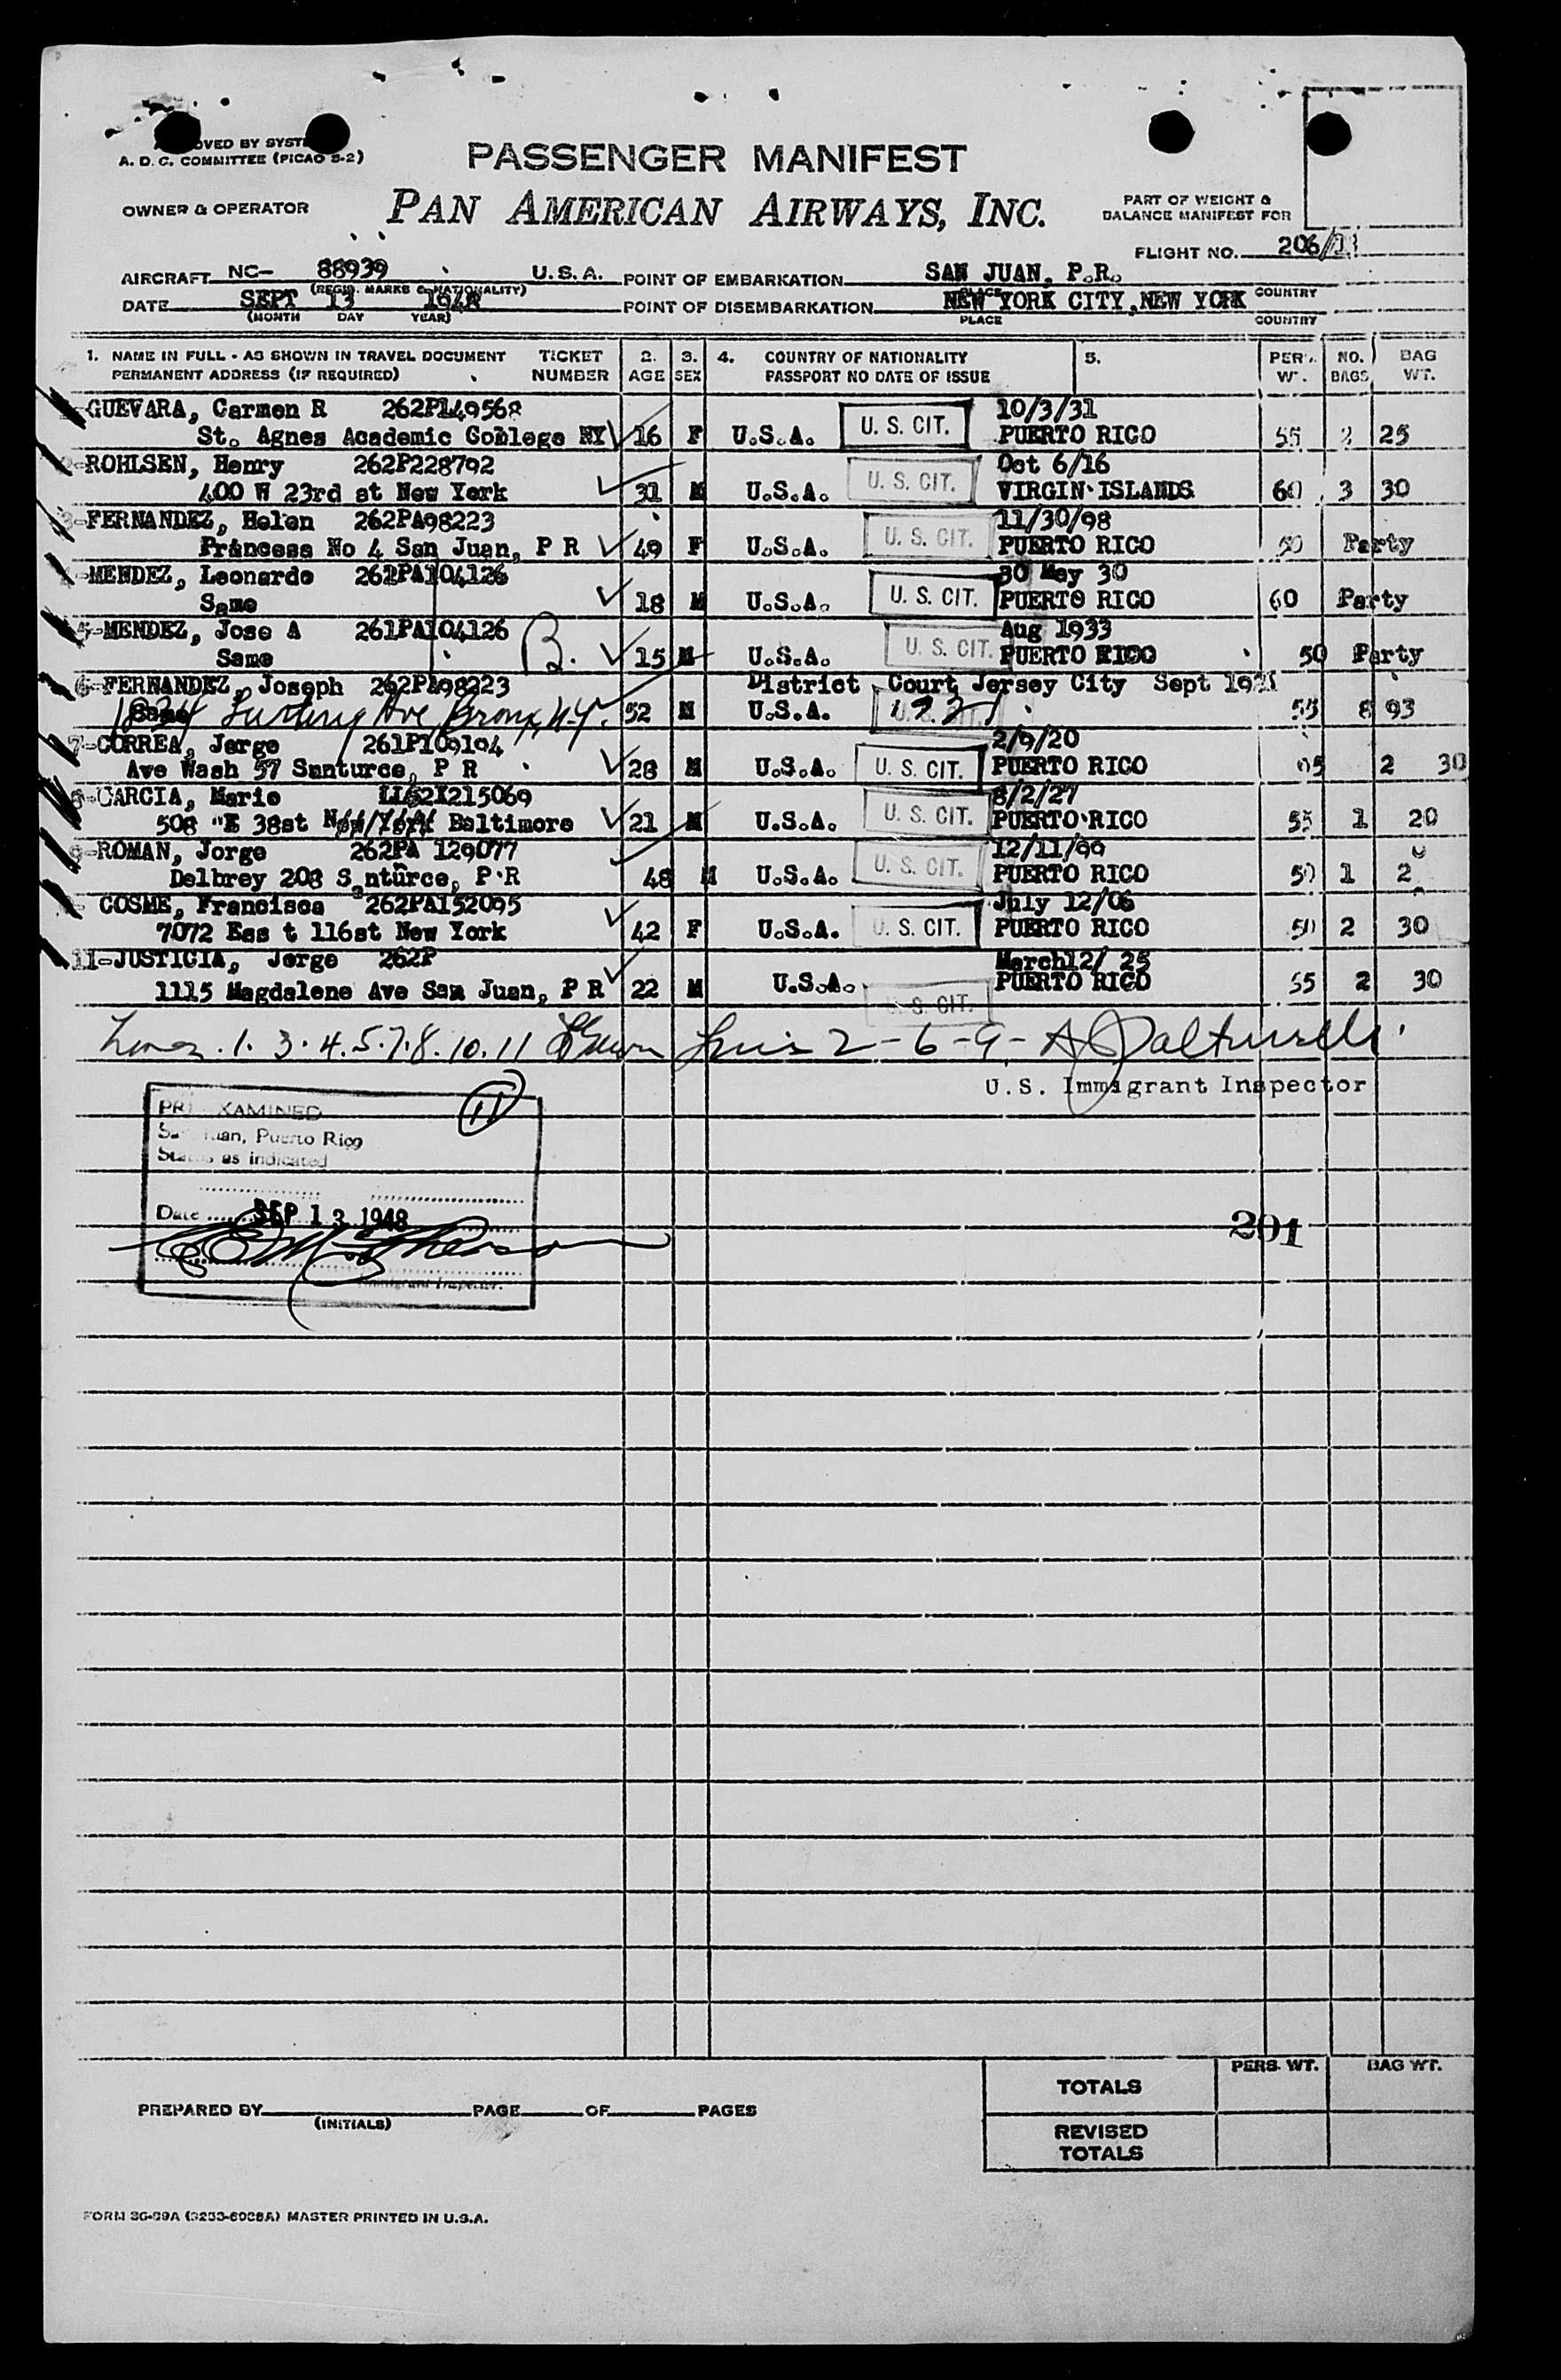 OVED BY SYST
A. D. C. COMMITTEE (PICAO S-2)
PASSENGER MANIFEST
OWNER & OPERATOR
PAN AMERICAN AIRWAYS, INC.
PART OF WEIGHT &
BALANCE MANIFEST FOR
FLIGHT NO. 206/13
AIRCRAFT NC- 88939 U.S.A. POINT OF EMBARKATION SAN JUAN, P.R.
(REGIS. MARKS & NATIONALITY) PLACE COUNTRY
DATE SEPT 13 1948 POINT OF DISEMBARKATION NEW YORK CITY, NEW YORK
(MONTH DAY YEAR) PLACE COUNTRY
1. NAME IN FULL - AS SHOWN IN TRAVEL DOCUMENT TICKET 2. 3. 4. COUNTRY OF NATIONALITY 5. PERS. NO. BAG
PERMANENT ADDRESS (IF REQUIRED) NUMBER AGE SEX PASSPORT NO DATE OF ISSUE WT. BAGS WT.
GUEVARA, Carmen R 262P149568 10/3/31
St. Agnes Academic Gollege NY 16 F U.S.A. U. S. CIT. PUERTO RICO 55 2 25
ROHLSEN, Henry 262P228792 Oct 6/16
400 W 23rd st New York 31 M U.S.A. U. S. CIT. VIRGIN ISLANDS 60 3 30
3-FERNANDEZ, Helen 262PA98223 11/30/98
Princess No 4 San Juan, P R 49 F U.S.A. U. S. CIT. PUERTO RICO 50 Party
MENDEZ, Leonardo 261PA104126 30 May 30
Same 18 M U.S.A. U. S. CIT. PUERTO RICO 60 Party
5-MENDEZ, Jose A 261PA104126 B. Aug 1933
Same 15 M U.S.A. U. S. CIT. PUERTO RICO 50 Party
6-FERNANDEZ, Joseph 262PA98223 District Court Jersey City Sept 1921
Same Ave Bronx, N.Y. 52 M U.S.A. 1921 55 8 93
7-CORREA, Jorge 261P109104 2/9/20
Ave Wash 57 Santurce, P R 28 M U.S.A. U. S. CIT. PUERTO RICO 2 30
GARCIA, Mario 8/2/27
508 "E 38st New York Baltimore 21 M U.S.A. U. S. CIT. PUERTO RICO 55 1 20
9-ROMAN, Jorge 262PA 129077 12/11/99
Delbrey 208 Santurce, P R 48 M U.S.A. U. S. CIT. PUERTO RICO 50 1 20
COSME, Francisca 262PA152095 July 12/06
7072 Eas t 116st New York 42 F U.S.A. U. S. CIT. PUERTO RICO 50 2 30
11-JUSTICIA, Jorge 262P March12/ 25
1115 Magdalene Ave San Juan, P R 22 M U.S.A. U. S. CIT. PUERTO RICO 55 2 30
Lines 1. 3. 4. 5. 7. 8. 10. 11 2 - 6 - 9 -
U.S. Immigrant Inspector
11
PRE EXAMINED
San Juan, Puerto Rico
Status as indicated
Date SEP 13 1948
Immigrant Inspector.
201
PERS. WT. BAG WT.
TOTALS
PREPARED BY PAGE OF PAGES
(INITIALS)
REVISED
TOTALS
MASTER PRINTED IN U.S.A.